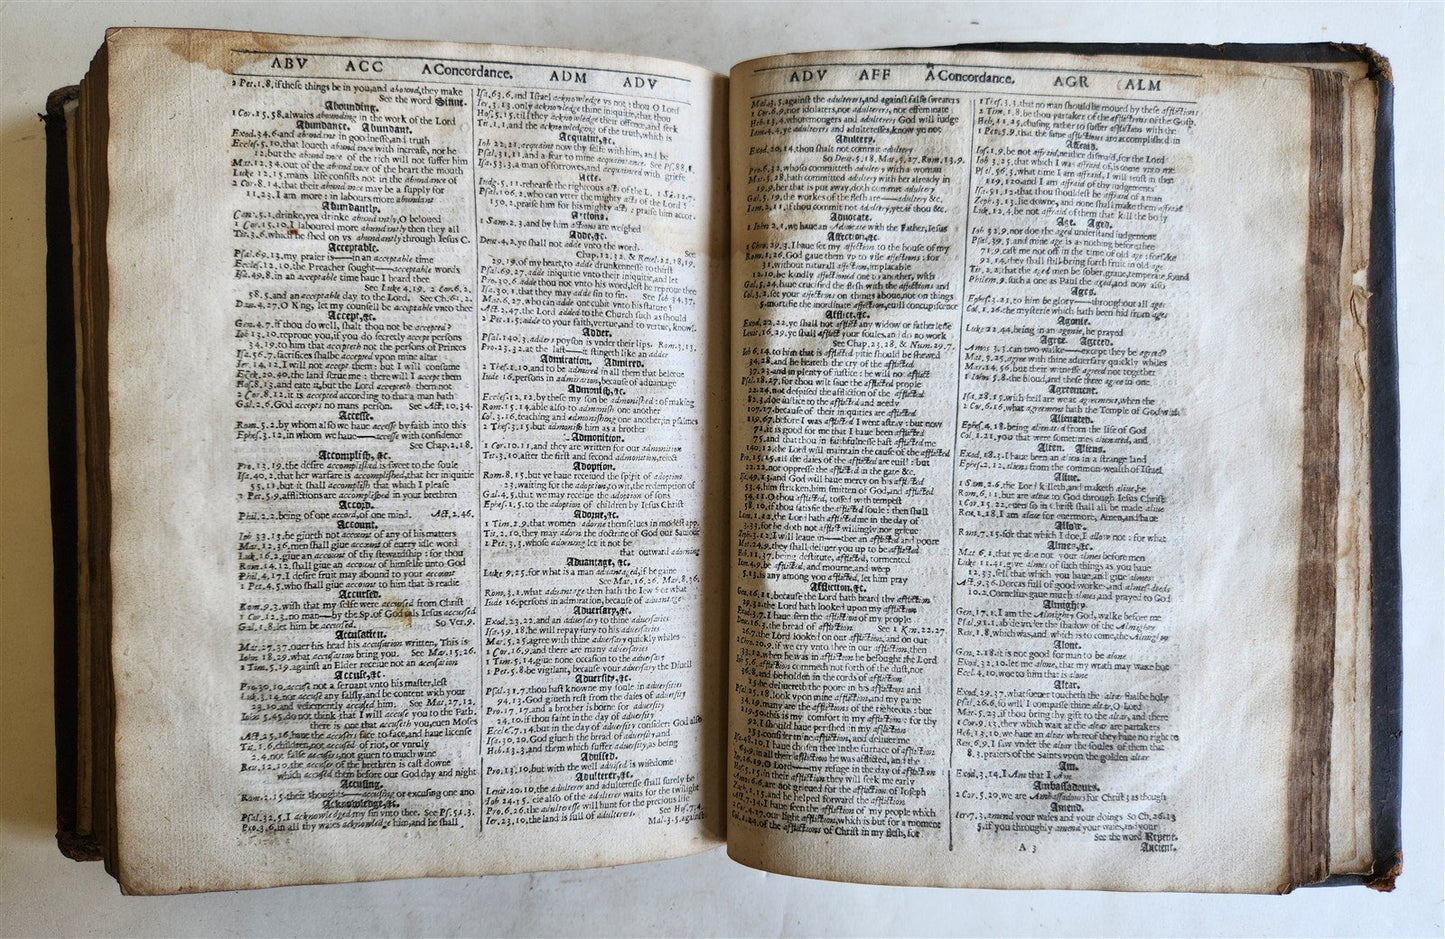 ABV ACC A Concordance. ADM ADV
2 Pet.1.8, if these things be in you, and abound, they make
See the word Sinne.
Abounding.
1 Cor.15.58, alwaies abounding in the work of the Lord
Abundance. Abundant.
Exod.34.6, and abundant in goodnesse, and truth
Eccles.5.10, that loueth abundance with increase, nor he
12, but the abundance of the rich will not suffer him
Mat.12.34, out of the abundance of the heart the mouth
Luke 12.15, mans life consists not in the abundance of
2 Cor.8.14, that their abundance may be a supply for
11.23, I am more: in labours more abundant
Abundantly.
Can.5.1, drinke, yea drinke abundantly, O beloued
1 Cor.15.10, I laboured more abundantly then they all
Tit.3.6, which he shed on vs abundantly through Iesus C.
Acceptable.
Psal.69.13, my praier is——in an acceptable time
Eccles.12.10, the Preacher sought——acceptable words
Isa.49.8, in an acceptable time haue I heard thee
See Luke 4.19. 2 Cor.6.2.
58.5, and an acceptable day to the Lord. See Ch.61.2.
Dan.4.27, O King, let my counsell be acceptable vnto thee
Accept, &c.
Gen.4.7, if thou do well, shalt thou not be accepted?
Iob 13.10, reproue you, if you do secretly accept persons
34.19, to him that accepteth not the persons of Princes
Isa.56.7, sacrifices shalbe accepted vpon mine altar
Ier.14.12, I will not accept them: but I will consume
Ezek.20.40, the land serue me: there will I accept them
Hos.8.13, and eate it, but the Lord accepteth them not
2 Cor.8.12, it is accepted according to that a man hath
Gal.2.6, God accepts no mans person. See Act.10.34.
Accesse.
Rom.5.2, by whom also we haue accesse by faith into this
Ephes.3.12, in whom we haue——accesse with confidence
See Chap.2.18.
Accomplish, &c.
Pro.13.19, the desire accomplished is sweet to the soule
Isa.40.2, that her warfare is accomplished, that her iniquitie
55.11, but it shall accomplish that which I please
1 Pet.5.9, afflictions are accomplished in your brethren
Accord.
Phil.2.2, being of one accord, of one mind. Act.2.46.
Account.
Iob 33.13, he giueth not account of any of his matters
Mat.12.36, men shall giue account of euery idle word
Luk.16.2, giue an account of thy stewardship: for thou
Rom.14.12, shall giue an account of himselfe vnto God
Phil.4.17, I desire fruit may abound to your account
1 Pet.4.5, who shall giue account to him that is readie
Accursed.
Rom.9.3, wish that my selfe were accursed from Christ
1 Cor.12.3, no man——by the Sp. of God cals Iesus accursed
Gal.1.8, let him be accursed. So Ver.9.
Accusation.
Mat.27.37, ouer his head his accusation written, This is
Iohn 18.29, what accusation bring you. See Mar.15.26.
1 Tim.5.19, against an Elder receiue not an accusation
Accuse, &c.
Pro.30.10, accuse not a seruant vnto his master, lest
Luk.3.14, nor accuse any falsly, and be content with your
23.10, and vehemently accused him. See Mat.27.12.
Iohn 5.45, do not think that I will accuse you to the Fath.
there is one that accuseth you, euen Moses
Act.25.16, haue the accusers face to face, and haue license
Tit.1.6, children, not accused of riot, or vnruly
2.4, not false accusers, not giuen to much wine
Reu.12.10, the accuser of the brethren is cast downe
which accused them before our God day and night
Accusing.
Rom.2.15, their thoughts——accusing or excusing one ano.
Acknowledge, &c.
Psal.32.5, I acknowledged my sin vnto thee. See Ps.51.3.
Pro.3.6, in all thy waies acknowledge him, and he shall
Isa.63.6, and Israel acknowledge vs not: thou O Lord
Ier.3.13, only acknowledge thine iniquitie, that thou
Hos.5.15, till they acknowledge their offence, and seek
Tit.1.1, and the acknowledging of the truth, which is
Acquaint, &c.
Iob 22.21, acquaint now thy selfe with him, and be
Psal.31.11, and a fear to mine acquaintance. See Ps.88.8.
Isa.53.3, a man of sorrowes, and acquainted with griefe
Acts.
Iudg.5.11, rehearse the righteous acts of the L.
Psal.106.2, who can vtter the mighty acts of the Lord?
150.2, praise him for his mighty acts: praise him accor.
Actions.
1 Sam.2.3, and by him actions are weighed
Adde, &c.
Deut.4.2, ye shall not adde vnto the word. See
Chap.12.32. & Reuel.22.18,19.
29.19, of my heart, to adde drunkennesse to thirst
Psal.69.27, adde iniquitie vnto their iniquitie, and let
Pro.30.6, adde thou not vnto his word, lest he reproue thee
Isa.30.1, that they may adde sin to sin. See Iob 34.37.
Mat.6.27, who can adde one cubit vnto his stature?
Act.2.47, the Lord added to the Church such as should
2 Pet.1.5, adde to your faith, vertue, and to vertue, knowl.
Adder.
Psal.140.3, adders poyson is vnder their lips. Rom.3.13.
Pro.23.32, at the last——it stingeth like an adder
Admiration. Admired.
2 Thes.1.10, and to be admired in all them that beleeue
Iude 16, persons in admiration, because of aduantage
Admonish, &c.
Eccles.12.12, by these my son be admonished: of making
Rom.15.14, able also to admonish one another
Col.3.16, teaching and admonishing one another, in psalmes
2 Thes.3.15, but admonish him as a brother
Admonition.
1 Cor.10.11, and they are written for our admonition
Tit.3.10, after the first and second admonition, reiect
Adoption.
Rom.8.15, but ye haue receiued the spirit of adoption
23, waiting for the adoption, to wit, the redemption of
Gal.4.5, that we may receiue the adoption of sons
Ephes.1.5, to the adoption of children by Iesus Christ
Adorne, &c.
1 Tim.2.9, that women adorne themselues in modest app.
Tit.2.10, they may adorn the doctrine of God our Sauiour
1 Pet.3.3, whose adorning let it not be
that outward adorning
Aduantage, &c.
Luke 9.25, for what is a man aduantaged, if he gaine
See Mat.16.26. Mar.8.36.
Rom.3.1, what aduantage then hath the Iew? or what
Iude 16, persons in admiration, because of aduantage
Aduersary, &c.
Exod.23.22, and an aduersary to thine aduersaries
Isa.59.18, he will repay fury to his aduersaries
Mat.5.25, agree with thine aduersary quickly whiles
1 Cor.16.9, and there are many aduersaries
1 Tim.5.14, giue none occasion to the aduersary
1 Pet.5.8, be vigilant, because your aduersary the Diuell
Aduersity, &c.
Psal.31.7, thou hast knowne my soule in aduersities
94.13, God giueth rest from the daies of aduersity
Pro.17.17, and a brother is borne for aduersity
24.10, if thou faint in the day of aduersity
Eccles.7.14, but in the day of aduersity consider: God also
Isa.30.20, God giueth the bread of aduersity, and
Heb.13.3, and them which suffer aduersity, as being
Aduised.
Pro.13.10, but with the well aduised is wisedome
Adulterer, &c.
Leuit.20.10, the adulterer and adulteresse shall surely be
Iob 24.15, eie also of the adulterer waites for the twilight
Pro.6.26, the adulteresse will hunt for the precious life
Ier.23.10, the land is full of adulterers. See Hos.7.4.
Mal.3.5, against
ADV AFF A Concordance. AGR ALM
Mal.3.5, against the adulterers, and against false swearers
1 Cor.6.9, nor idolaters, nor adulterers, nor effeminate
Heb.13.4, whoremongers and adulterers God will iudge
Iam.4.4, ye adulterers and adulteresses, know ye not
Adultery.
Exod.20.14, thou shalt not commit adultery
So Deut.5.18. Mat.5.27. Rom.13.9.
Pro.6.32, whoso committeth adultery with a woman
Mat.5.28, hath committed adultery with her already in
19.9, her that is put away, doth commit adultery
Gal.5.19, the workes of the flesh are——adultery &c.
Iam.2.11, if thou commit not adultery, yet if thou &c.
Aduocate.
1 Iohn 2.1, we haue an Aduocate with the Father, Iesus
Affection, &c.
1 Chro.29.3, I haue set my affection to the house of my
Rom.1.26, God gaue them vp to vile affections: for
31, without naturall affection, implacable
12.10, be kindly affectioned one to another, with
Gal.5.24, haue crucified the flesh with the affections and
Col.3.2, set your affections on things aboue, not on things
5, mortifie the inordinate affection, euill concupiscence
Afflict, &c.
Exod.22.22, ye shall not afflict any widow or fatherlesse
Leuit.16.29, ye shall afflict your soules, and do no work
See Chap.23.28. & Num.29.7.
Iob 6.14, to him that is afflicted pitie should be shewed
34.28, and he heareth the cry of the afflicted
37.23, and in plenty of iustice: he will not afflict
Psal.18.27, for thou wilt saue the afflicted people
22.24, not despised the affliction of the afflicted
82.3, doe iustice to the afflicted and needy
107.17, because of their iniquities are afflicted
119.67, before I was afflicted I went astray: but now
71, it is good for me that I haue been afflicted
75, and that thou in faithfulnesse hast afflicted me
140.12, the Lord will maintain the cause of the afflicted
Pro.15.15, all the daies of the afflicted are euill: but
22.22, nor oppresse the afflicted in the gate &c.
Isa.49.13, and God will haue mercy on his afflicted
53.4, him stricken, him smitten of God, and afflicted
54.11, O thou afflicted, tossed with tempest
58.10, if thou satisfie the afflicted soule: then shall
Lam.1.12, the Lord hath afflicted me in the day of
3.33, for he doth not afflict willingly, nor grieue
Zeph.3.12, I will leaue in——thee an afflicted and poore
Mat.24.9, they shall deliuer you up to be afflicted
Heb.11.37, being destitute, afflicted, tormented
Iam.4.9, be afflicted, and mourne, and weep
5.13, is any among you afflicted, let him pray
Affliction, &c.
Gen.16.11, because the Lord hath heard thy affliction
29.32, the Lord hath looked vpon my affliction
Exod.3.7, I haue seen the affliction of my people
Deut.16.3, the bread of affliction. See 1 Kin.22.27.
26.7, the Lord looked on our affliction, and on our
2 Chro.20.9, if we cry vnto thee in our affliction, then
33.12, when he was in affliction he besought the Lord
Iob 5.6, affliction commeth not forth of the dust, nor
36.8, and beholden in the cords of affliction
15, he deliuereth the poore in his affliction, and
Psal.25.18, look vpon mine affliction, and my paine
34.19, many are the afflictions of the righteous: but
119.50, this is my comfort in my affliction: for thy
92, I should haue perished in my affliction
153, consider mine affliction, and deliuer me
Isa.48.10, I haue chosen thee in the furnace of affliction
63.9, in all their affliction he was afflicted, and the
Ier.16.19, O Lord——my refuge in the day of affliction
Hos.5.15, in their affliction they will seek me early
Amos 6.6, are not grieued for the affliction of Ioseph
Zach.1.15, and he helped forward the affliction
Act.7.34, I haue seen the affliction of my people which
2 Cor.4.17, our light affliction, which is but for a moment
Col.1.24, of the afflictions of Christ in my flesh, for
1 Thes.3.3, that no man should be moued by these afflictions
2 Tim.1.8, be thou partaker of the afflictions of the Gosp.
Heb.11.25, chusing rather to suffer affliction with the
1 Pet.5.9, that the same afflictions are accomplished in
Afraid.
Iob 3.25, that which I was afraid of, is come vnto me
Psal.56.3, what time I am afraid, I will trust in thee
119.120, and I am afraid of thy iudgements
Isa.51.12, that thou shouldest be afraid of a man
Zeph.3.13, lie downe, and none shall make them afraid
Luk.12.4, be not afraid of them that kill the body
Age. Aged.
Iob 32.9, nor doe the aged vnderstand iudgement
Psal.39.5, and mine age is as nothing before thee
71.9, cast me not off in the time of old age: forsake
92.14, they shall still bring forth fruit in old age
Tit.2.2, that the aged men be sober, graue, temperate, sound
Philem.9, such a one as Paul the aged, and now also
Ages.
Ephes.3.21, to him be glory——throughout all ages
Col.1.26, the mysterie which hath been hid from ages
Agonie.
Luke 22.44, being in an agonie, he prayed
Agree. Agreed.
Amos 3.3, can two walke——except they be agreed?
Mat.5.25, agree with thine aduersary quickly whiles
Mar.14.56, but their witnesse agreed not together
1 Iohn 5.8, the bloud, and these three agree in one
Agreement.
Isa.28.15, with hell are we at agreement, when the
2 Cor.6.16, what agreement hath the Temple of God with
Alienated.
Ephes.4.18, being alienated from the life of God
Col.1.21, you that were sometimes alienated, and
Alien. Aliens.
Exod.18.3, I haue been an alien in a strange land
Ephes.2.12, aliens from the common-wealth of Israel
Aliue.
1 Sam.2.6, the Lord killeth, and maketh aliue, he
Rom.6.11, but are aliue to God through Iesus Christ
1 Cor.15.22, euen so in Christ shall all be made aliue
Reu.1.18, I am aliue for euermore, Amen, and haue
Allow.
Rom.7.15, for that which I doe, I allow not: for what
Almes, &c.
Mat.6.1, that ye doe not your almes before men
Luke 11.41, giue almes of such things as you haue
12.33, sell that which you haue, and giue almes:
Act.9.36, Dorcas full of good works, and almes-deeds
10.2, Cornelius gaue much almes, and prayed to God
Almighty.
Gen.17.1, I am the Almighty God, walke before me
Psal.91.1, abide vnder the shadow of the Almighty
Reu.1.8, which was, and which is to come, the Almighty
Alone.
Gen.2.18, it is not good for man to be alone
Exod.32.10, let me alone, that my wrath may waxe hot
Eccles.4.10, woe to him that is alone
Altar.
Exod.29.37, whatsoeuer toucheth the altar shall be holy
Psal.26.6, so will I compasse thine altar, O Lord
Mat.5.23, if thou bring thy gift to the altar, and there
1 Cor.9.13, they which wait at the altar are partakers
Heb.13.10, we haue an altar whereof they haue no right to
Reu.6.9, I saw vnder the altar the soules of them that
8.3, praiers of the Saints vpon the golden altar
Am.
Exod.3.14, I Am that I Am
Ambassadours.
2 Cor.5.20, we are Ambassadors for Christ; as though
Amend.
Ier.7.3, amend your waies and your doings So Ch.26.13
5, if you throughly amend your waies, and your
See the word Repent.
A 3 Ancient.